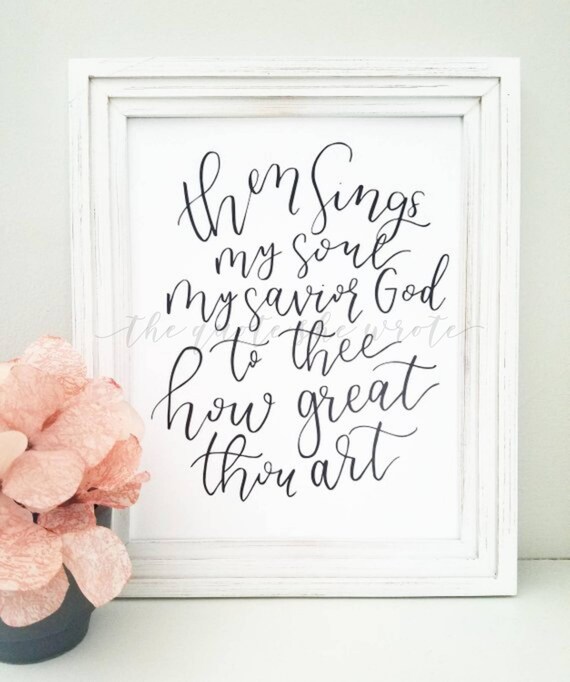 then Sings
my soul
my savior God
the quote she wrote
to thee
how great
thou art